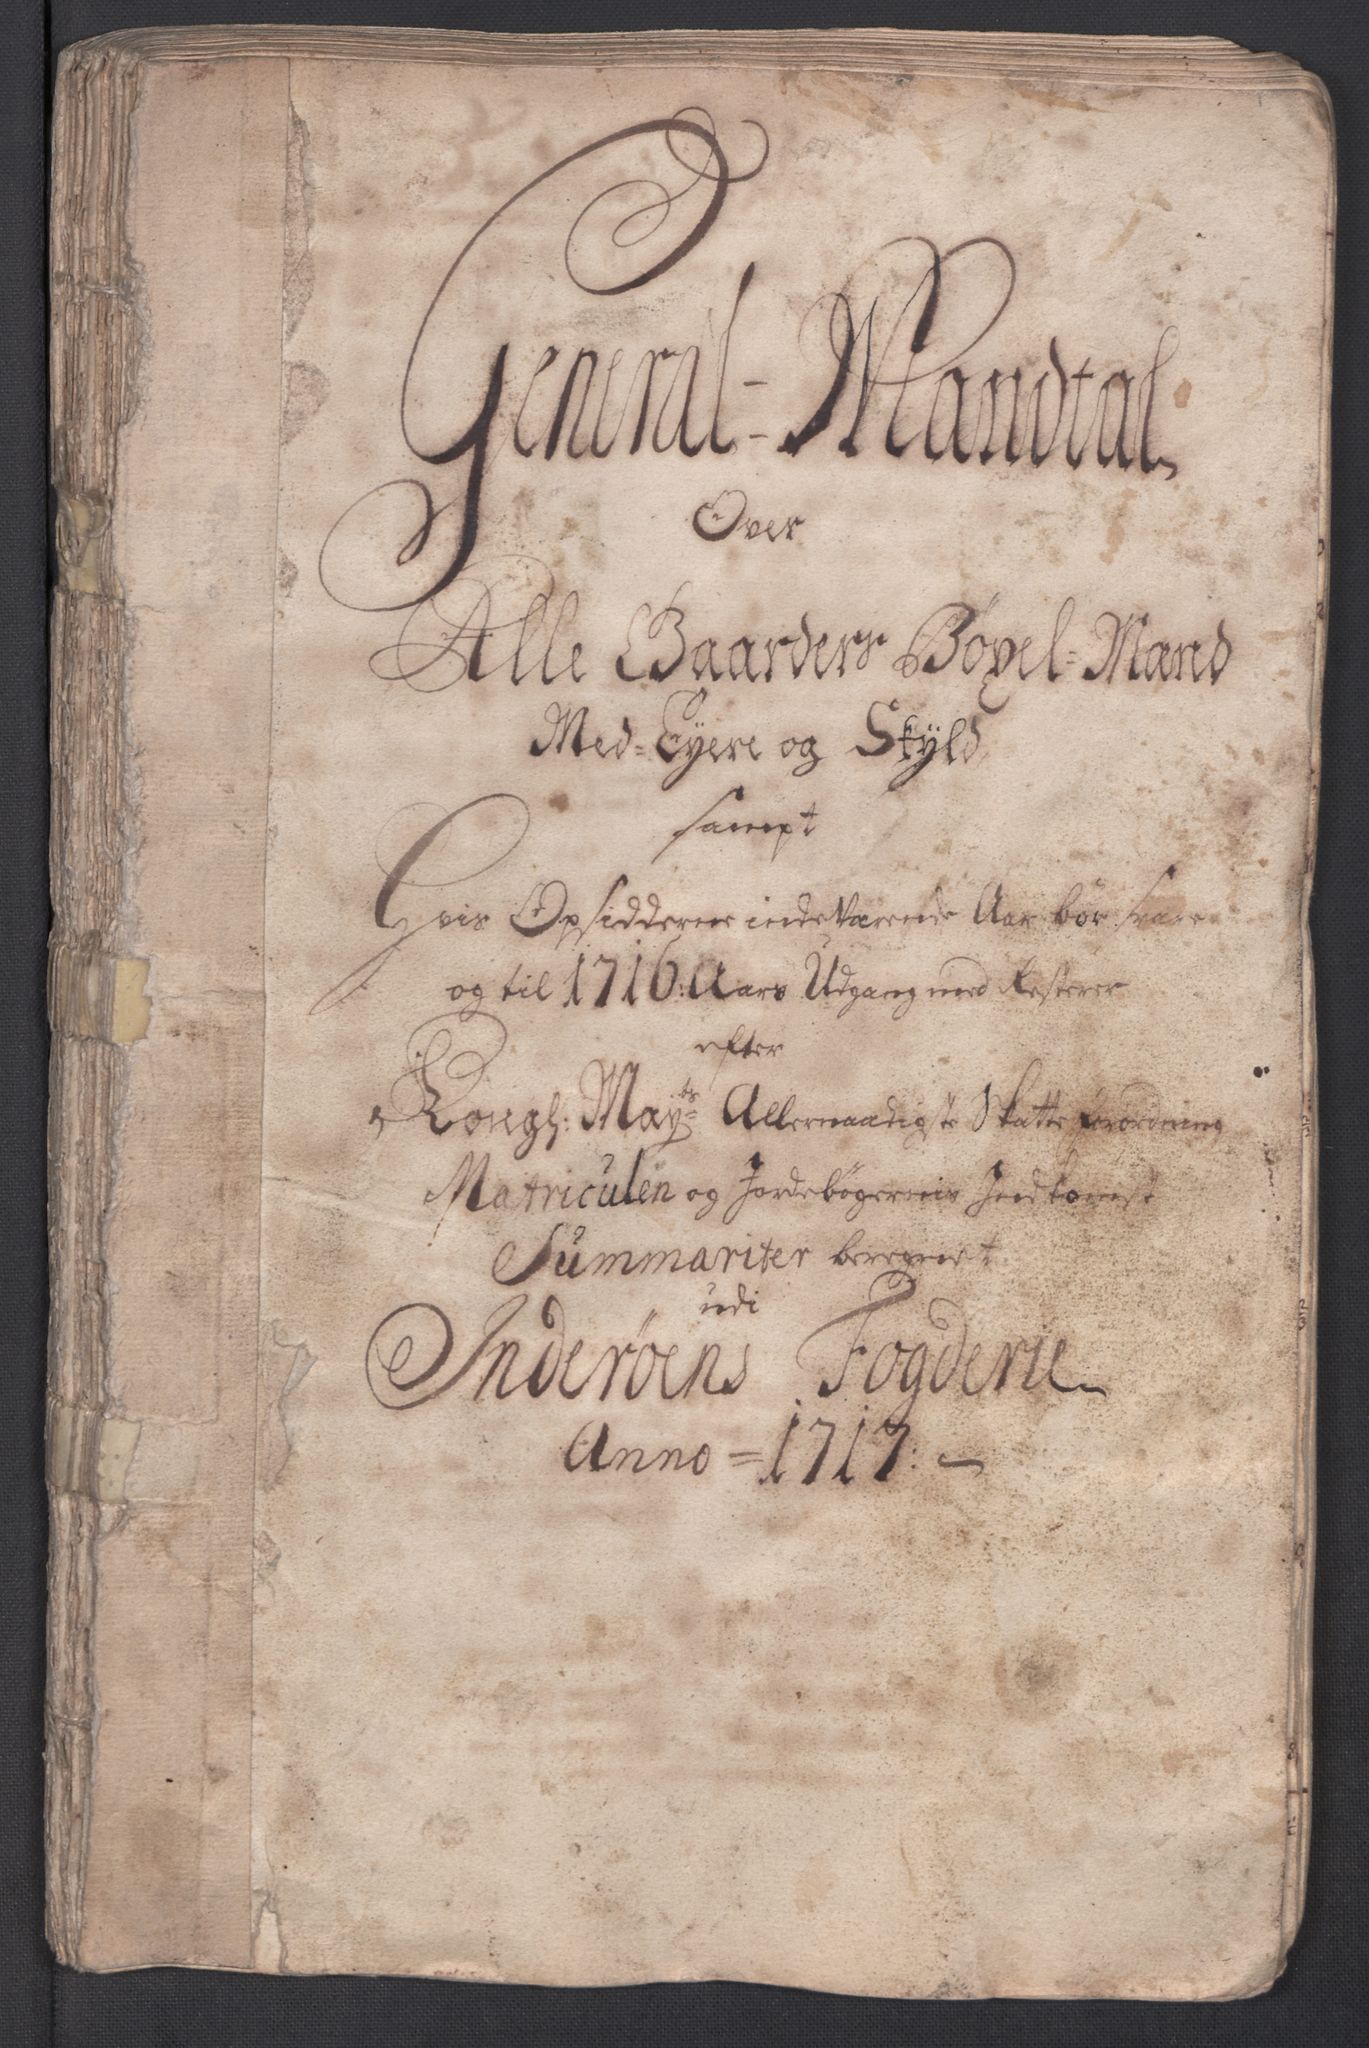 General-Mandtal
Over
Alle Gaarders Böxel-Mænd
Med-Eyere og Skyld
sampt
Hvis Opsidderne indeværende Aar bör svare
og til 1716: Aars Udgang med Resterer
efter
Kongl: May:ts Allernaadigste Skatte forordning
Matriculen og Jordebögernis Indkomst
Summariter beregnet
udi
Inderöens Fogderie
Anno = 1717: